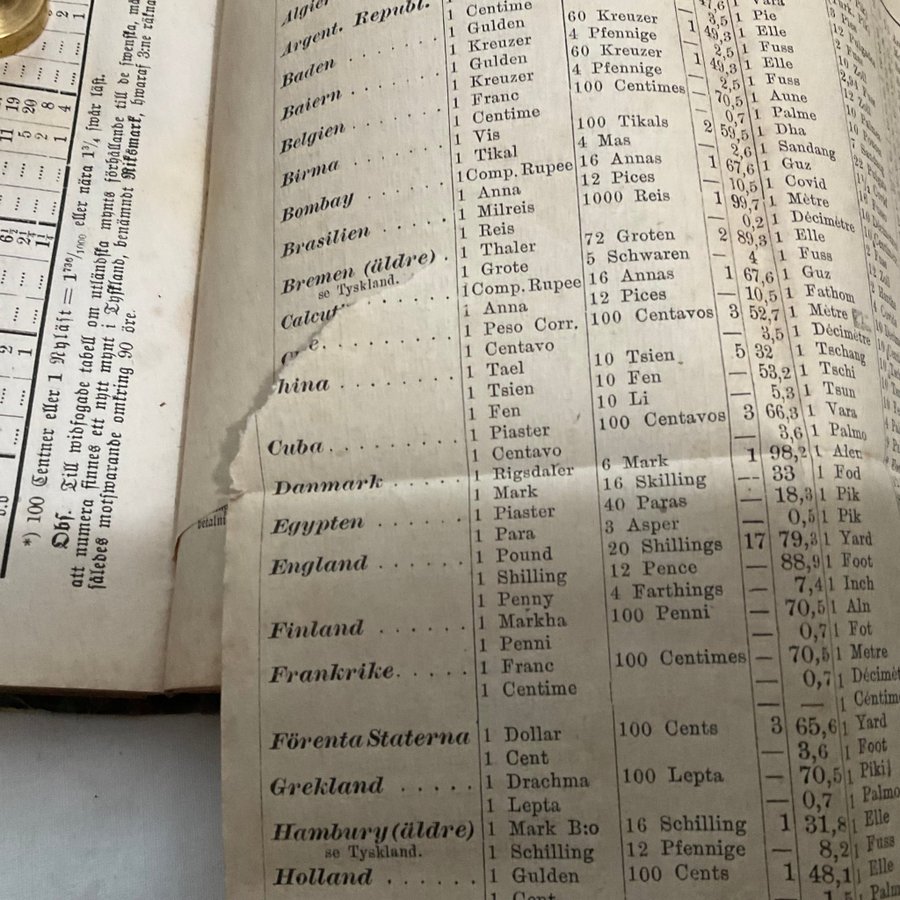 Argent. Republ.
1 Centime
1 Gulden 60 Kreuzer 1 49,3 1 Elle
Baden
1 Kreuzer 4 Pfennige — 2,5 1 Fuss
Baiern 1 Gulden 60 Kreuzer 1 49,3 1 Elle
1 Kreuzer 4 Pfennige — 2,5 1 Fuss
Belgien 1 Franc 100 Centimes — 70,5 1 Aune
1 Centime — 0,7 1 Palme
Birma 1 Vis 100 Tikals 2 59,5 1 Dha
1 Tikal 4 Mas — 2,6 1 Sandang
Bombay 1 Comp. Rupee 16 Annas 1 67,6 1 Guz
1 Anna 12 Pices — 10,5 1 Covid
Brasilien 1 Milreis 1000 Reis 1 99,7 1 Mètre
1 Reis — 0,2 1 Décimètre
Bremen (äldre) 1 Thaler 72 Groten 2 89,3 1 Elle
se Tyskland. 1 Grote 5 Schwaren — 4 1 Fuss
1 Comp. Rupee 16 Annas 1 67,6 1 Guz
1 Anna 12 Pices — 10,5 1 Fathom
1 Peso Corr. 100 Centavos 3 52,7 1 Mètre
1 Centavo — 3,5 1 Décimètre
hina 1 Tael 10 Tsien 5 32 1 Tschang
1 Tsien 10 Fen — 53,2 1 Tschi
1 Fen 10 Li — 5,3 1 Tsun
Cuba 1 Piaster 100 Centavos 3 66,3 1 Vara
1 Centavo — 3,6 1 Palmo
Danmark 1 Rigsdaler 6 Mark 1 98,2 1 Alen
1 Mark 16 Skilling — 33 1 Fod
Egypten 1 Piaster 40 Paras — 18,3 1 Pik
1 Para 3 Asper — 0,5 1 Pik
England 1 Pound 20 Shillings 17 79,3 1 Yard
1 Shilling 12 Pence — 88,9 1 Foot
1 Penny 4 Farthings — 7,4 1 Inch
Finland 1 Markha 100 Penni — 70,5 1 Aln
1 Penni — 0,7 1 Fot
Frankrike 1 Franc 100 Centimes — 70,5 1 Metre
1 Centime — 0,7 1 Décimèt
— — 1 Céntim
Förenta Staterna 1 Dollar 100 Cents 3 65,6 1 Yard
1 Cent — 3,6 1 Foot
Grekland 1 Drachma 100 Lepta — 70,5 1 Piki
1 Lepta — 0,7 1 Palmo
Hambury (äldre) 1 Mark B:o 16 Schilling 1 31,8 1 Elle
se Tyskland. 1 Schilling 12 Pfennige — 8,2 1 Fuss
Holland 1 Gulden 100 Cents 1 48,1 1 Elle
*) 100 Centner eller 1 Nyläst = 1 736/1000 eller nära 1 3/4 swår läst.
Obs. Till widfogade tabell om utländska mynts förhållande till de swenska, må
att numera finnes ett nytt mynt i Tyskland, benämndt Riksmark, hwaraf 3:ne räkna
således motswarande omkring 90 öre.